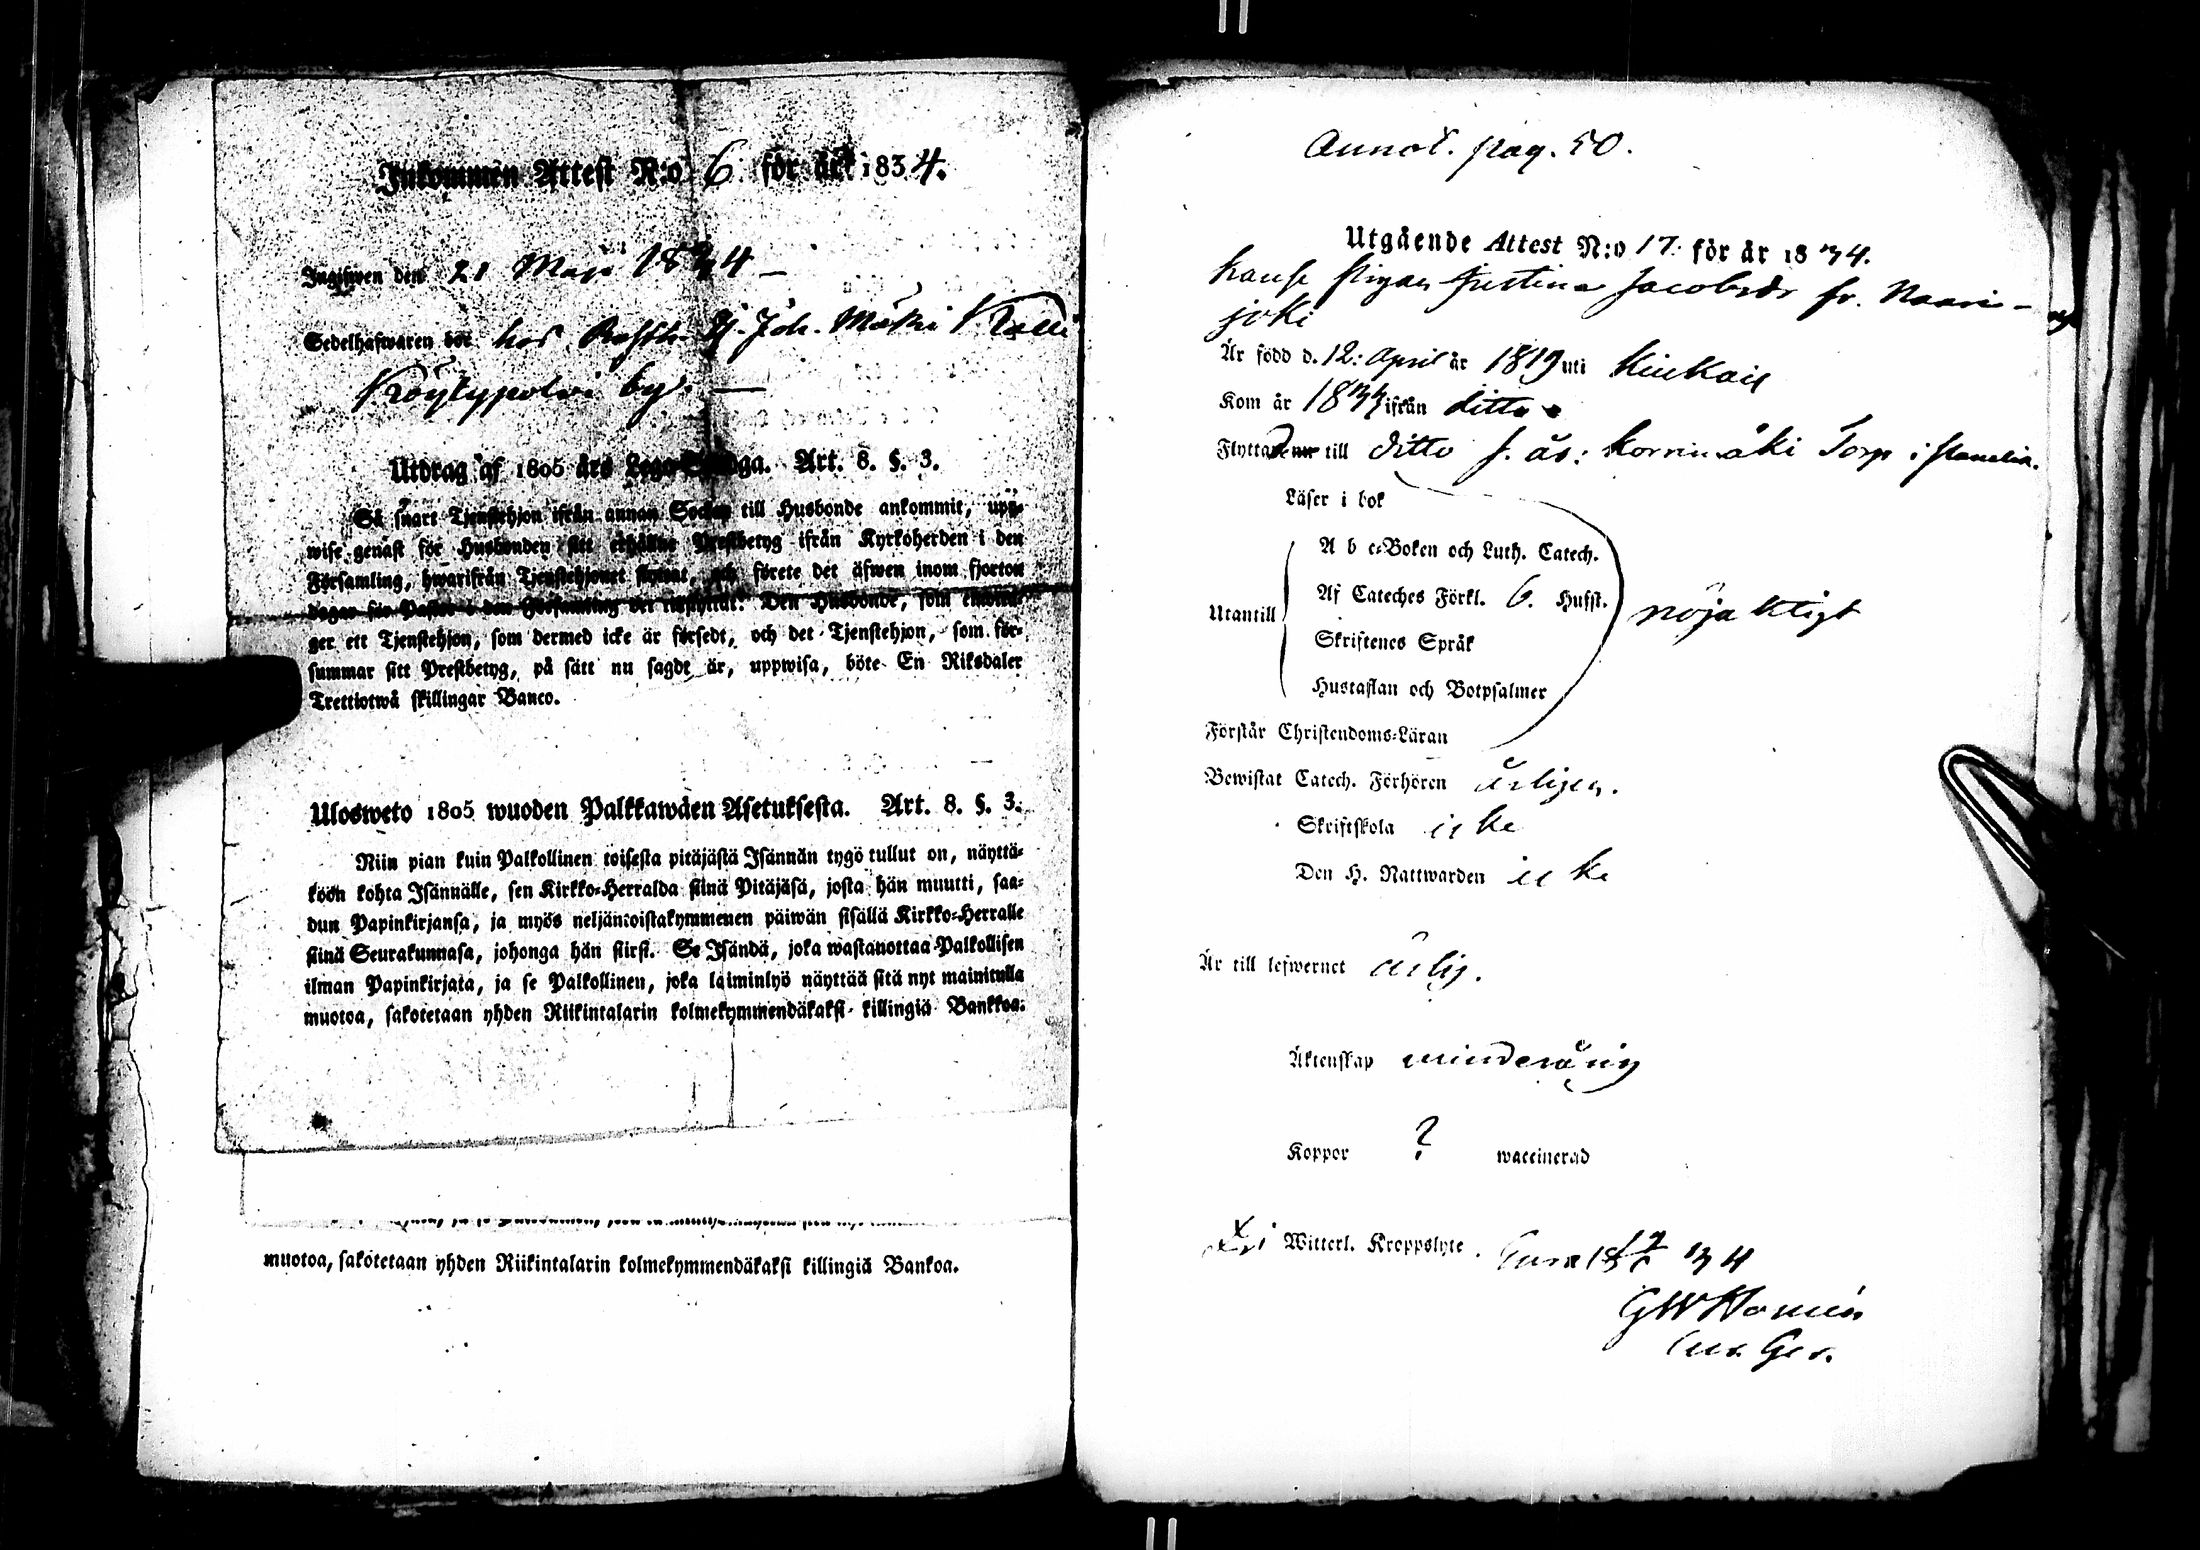 Inkommen Attest N:o 6 för året 1834.
Ingifwen den 21 Maji 1834 –
Sedelhafwaren bor hos Joh. Mäki Kalli
Köykypolvi by. —
Utdrag af 1805 års Lego-Stadga. Art. 8. §. 3.
Så snart Tjenstehjon ifrån annan Socken till Husbonde ankommit, upp-
wise genast för Husbonden sitt erhållne Prestbetyg ifrån Kyrkoherden i den
Församling, hwarifrån Tjenstehjonet flyttat, och förete det äfwen inom fjorton
dagar för Pastor i den Församling det inflyttat. Den Husbonde, som emotta-
ger ett Tjenstehjon, som dermed icke är försedt, och det Tjenstehjon, som för-
summar sitt Prestbetyg, på sätt nu sagdt är, uppwisa, böte En Riksdaler
Trettiotwå skillingar Banco.
Ulosweto 1805 wuoden Palkkawäen Asetuksesta. Art. 8. §. 3.
Niin pian kuin Palkollinen toisesta pitäjästä Isännän tygö tullut on, näyttä-
köön kohta Isännälle, sen Kirkko-Herralda siinä Pitäjäsä, josta hän muutti, saa-
dun Papinkirjansa, ja myös neljäntoistakymmenen päiwän sisällä Kirkko-Herralle
siinä Seurakunnasa, johonga hän siirsi. Se Isändä, joka wastanottaa Palkollisen
ilman Papinkirjata, ja se Palkollinen, joka laiminlyö näyttää sitä nyt mainitulla
muotoa, sakotetaan yhden Riikintalarin kolmekymmendäkaksi killingiä Bankkoa.
muotoa, sakotetaan yhden Riikintalarin kolmekymmendäkaksi killingiä Bankoa.
Annot. pag. 50.
Utgående Attest N:o 17. för år 1834.
pigan Justina Jacobsdr fr. Naari-
joki
Är född d. 12: April år 1819 uti Kiukais
Kom år 1834 ifrån ditto
Flyttar nu till ditto Korrimäki Torp i
Läser i bok
A b c-Boken och Luth. Catech.
Af Cateches Förkl. 6. Hufst.
Utantill nöjaktigt
Skriftenes Språk
Hustaflan och Botpsalmer
Förstår Christendoms-Läran
Bewistat Catech. Förhören årligen.
Skriftskola icke
Den H. Nattwarden icke
Är till lefwernet ärlig.
Äktenskap minderårig
Koppor ? waccinerad
Witterl. Kroppslyte. Eura 34